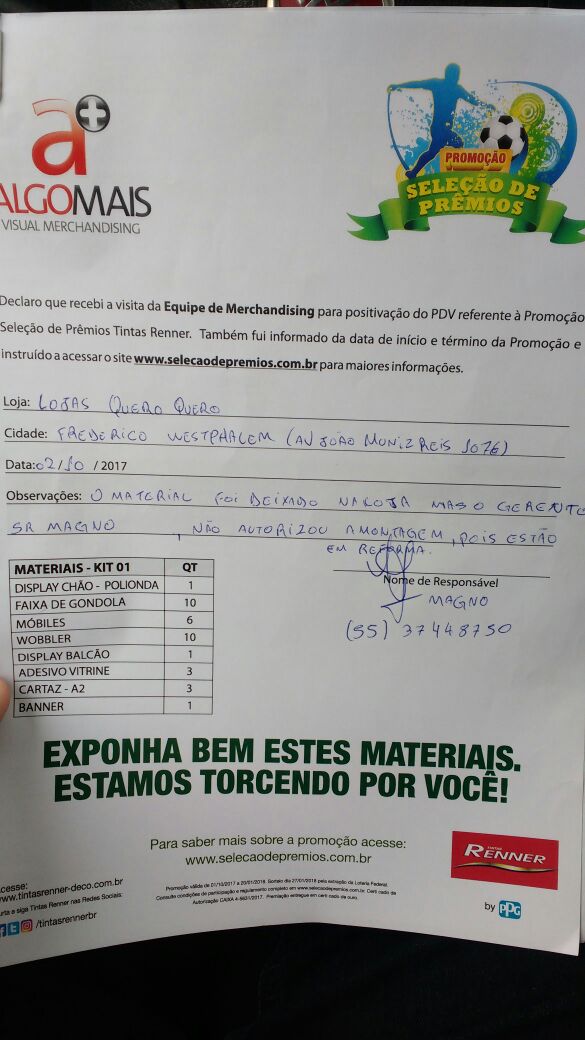 a+
ALGOMAIS
VISUAL MERCHANDISING
PROMOÇÃO
SELEÇÃO DE
PRÊMIOS
Declaro que recebi a visita da Equipe de Merchandising para positivação do PDV referente à Promoção
Seleção de Prêmios Tintas Renner. Também fui informado da data de início e término da Promoção e
instruído a acessar o site www.selecaodepremios.com.br para maiores informações.
Loja: LOJAS QUERO QUERO
Cidade: FREDERICO WESTPHALEM (AV JOÃO MUNIZ REIS 1076)
Data: 02/10 /2017
Observações: O MATERIAL FOI DEIXADO NA LOJA MAS O GERENTE
SR MAGNO , NÃO AUTORIZOU A MONTAGEM, POIS ESTÃO
EM REFORMA.
Nome de Responsável
MAGNO
(55) 37448750
MATERIAIS - KIT 01 QT
DISPLAY CHÃO - POLIONDA 1
FAIXA DE GONDOLA 10
MÓBILES 6
WOBBLER 10
DISPLAY BALCÃO 1
ADESIVO VITRINE 3
CARTAZ - A2 3
BANNER 1
EXPONHA BEM ESTES MATERIAIS.
ESTAMOS TORCENDO POR VOCÊ!
Para saber mais sobre a promoção acesse:
www.selecaodepremios.com.br
TINTAS
RENNER
by PPG
cesse:
www.tintasrenner-deco.com.br
urta e siga Tintas Renner nas Redes Sociais:
/tintasrennerbr
Promoção válida de 01/10/2017 a 20/01/2018. Sorteio dia 27/01/2018 pela extração da Loteria Federal.
Consulte condições de participação e regulamento completo em www.selecaodepremios.com.br. Certificado de
Autorização CAIXA 4-5631/2017. Premiação entregue em certificado de ouro.